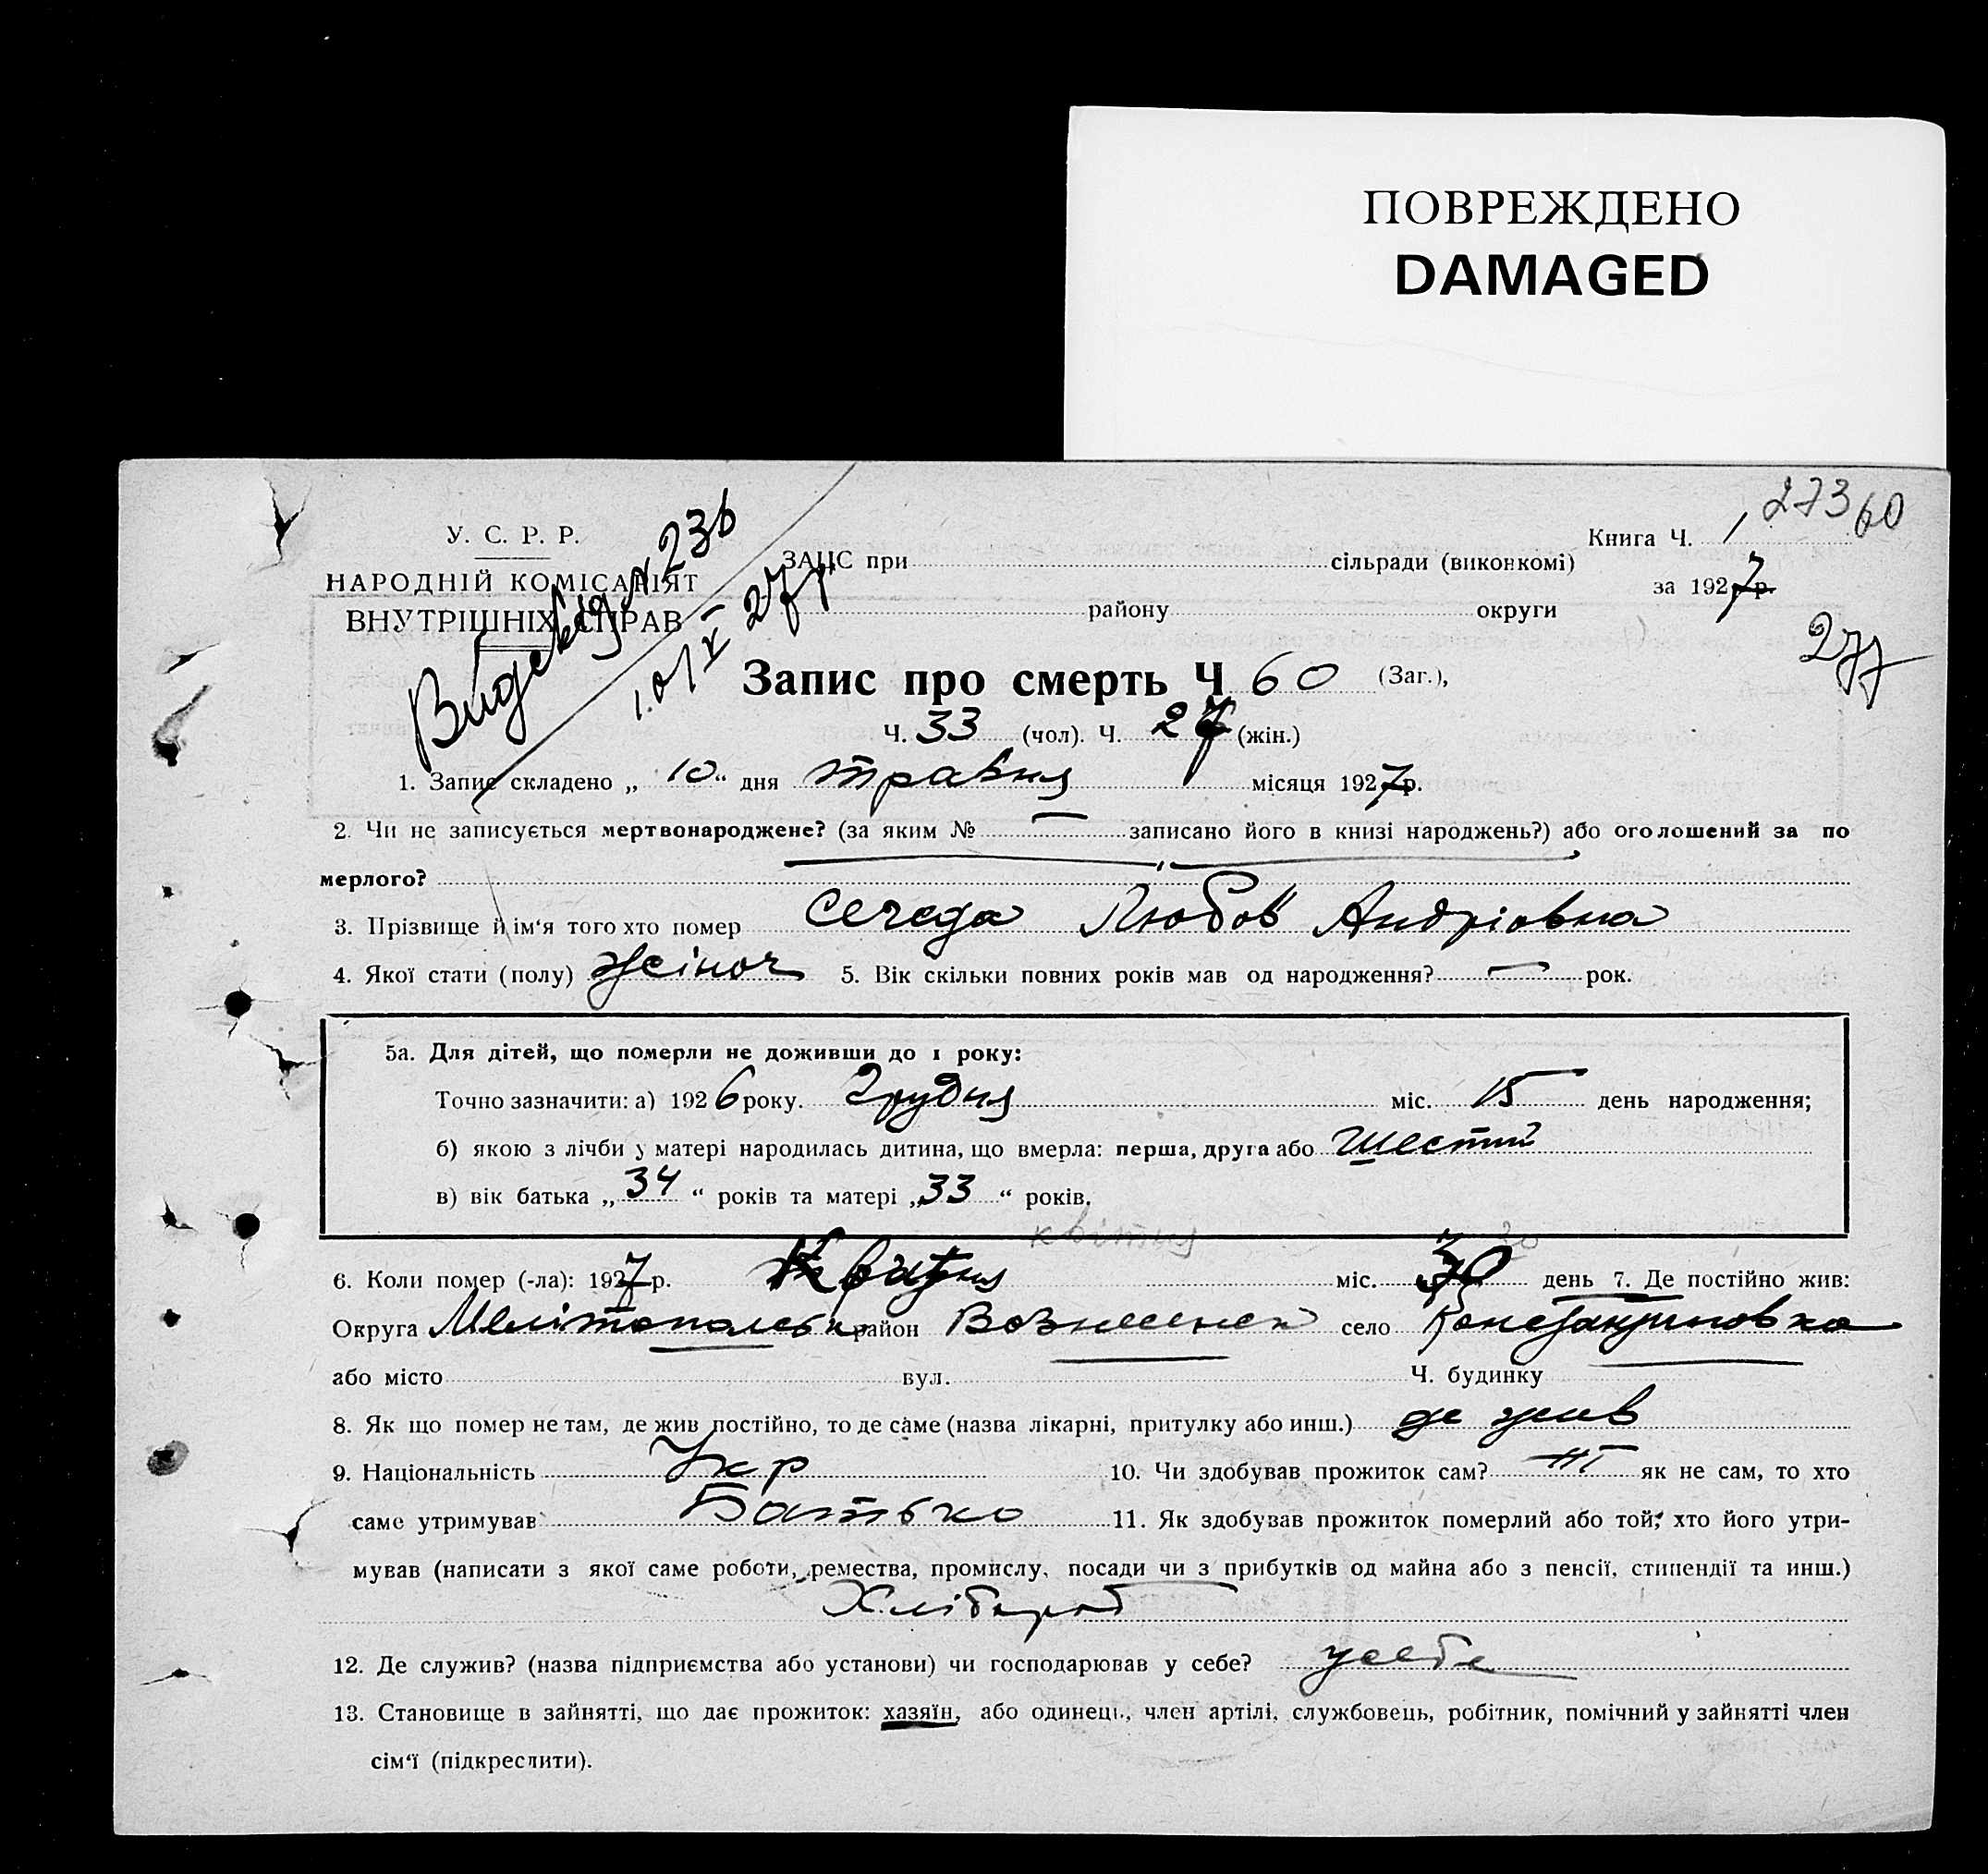 ПОВРЕЖДЕНО
DAMAGED
273 60
У. С. Р. Р.
НАРОДНІЙ КОМІСАРІЯТ
ВНУТРІШНІХ СПРАВ
236
10/V 27 р
ЗАЦС при сільради (виконкомі)
району округи
Книга Ч. 1
за 1927 р.
277
Запис про смерть Ч 60 (Заг.),
Ч. 33 (чол). Ч. 27 (жін.)
1. Запис складено „ 10 “ дня травня місяця 1927 р.
2. Чи не записується мертвонароджене? (за яким № — записано його в книзі народжень?) або оголошений за по
мерлого?
3. Прізвище й ім‘я того хто помер Середа Любов Андріовна
4. Якої стати (полу) жіноч 5. Вік скільки повних років мав од народження? — рок.
5а. Для дітей, що померли не доживши до 1 року:
Точно зазначити: а) 1926 року. Грудня міс. 15 день народження;
б) якою з лічби у матері народилась дитина, що вмерла: перша, друга або шестий
в) вік батька „ 34 “ років та матері „ 33 “ років.
квітня 30
6. Коли помер (-ла): 1927 р. Квітня міс. 30 день 7. Де постійно жив:
Округа Мелітопольськ район Вознесенськ село Констянтиновка
або місто вул. Ч. будинку
8. Як що помер не там, де жив постійно, то де саме (назва лікарні, притулку або инш.) де жив
9. Національність Укр 10. Чи здобував прожиток сам? ні як не сам, то хто
саме утримував Батько 11. Як здобував прожиток померлий або той, хто його утри-
мував (написати з якої саме роботи, ремества, промислу, посади чи з прибутків од майна або з пенсії, стипендії та инш.)
Хлібороб
12. Де служив? (назва підприємства або установи) чи господарював у себе? у себе
13. Становище в зайнятті, що дає прожиток: хазяїн, або одинець, член артілі, службовець, робітник, помічний у зайнятті член
сім‘ї (підкреслити).